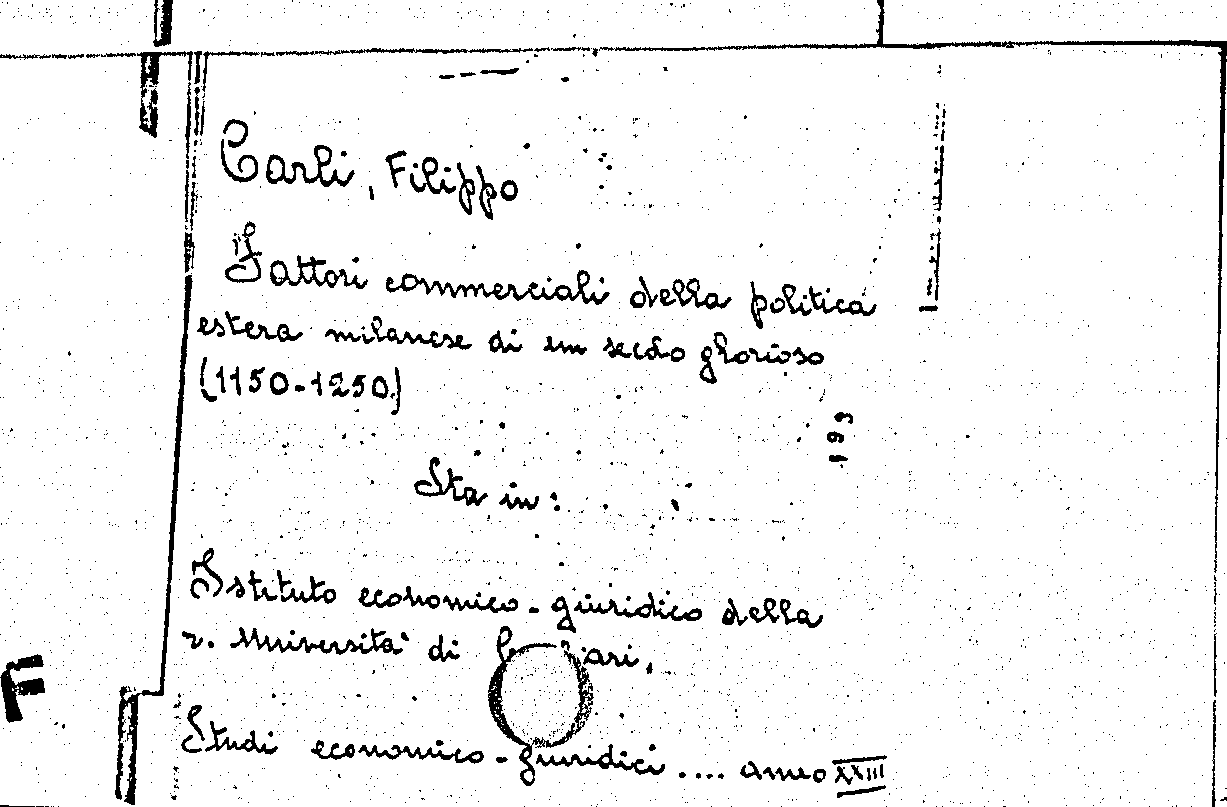 Carli, Filippo
Fattori commerciali della politica
estera milanese di un secolo glorioso
(1150-1250)
193
Sta in:
Istituto economico-giuridico della
r. Università di
F
Studi economico-giuridici .... anno XXIII